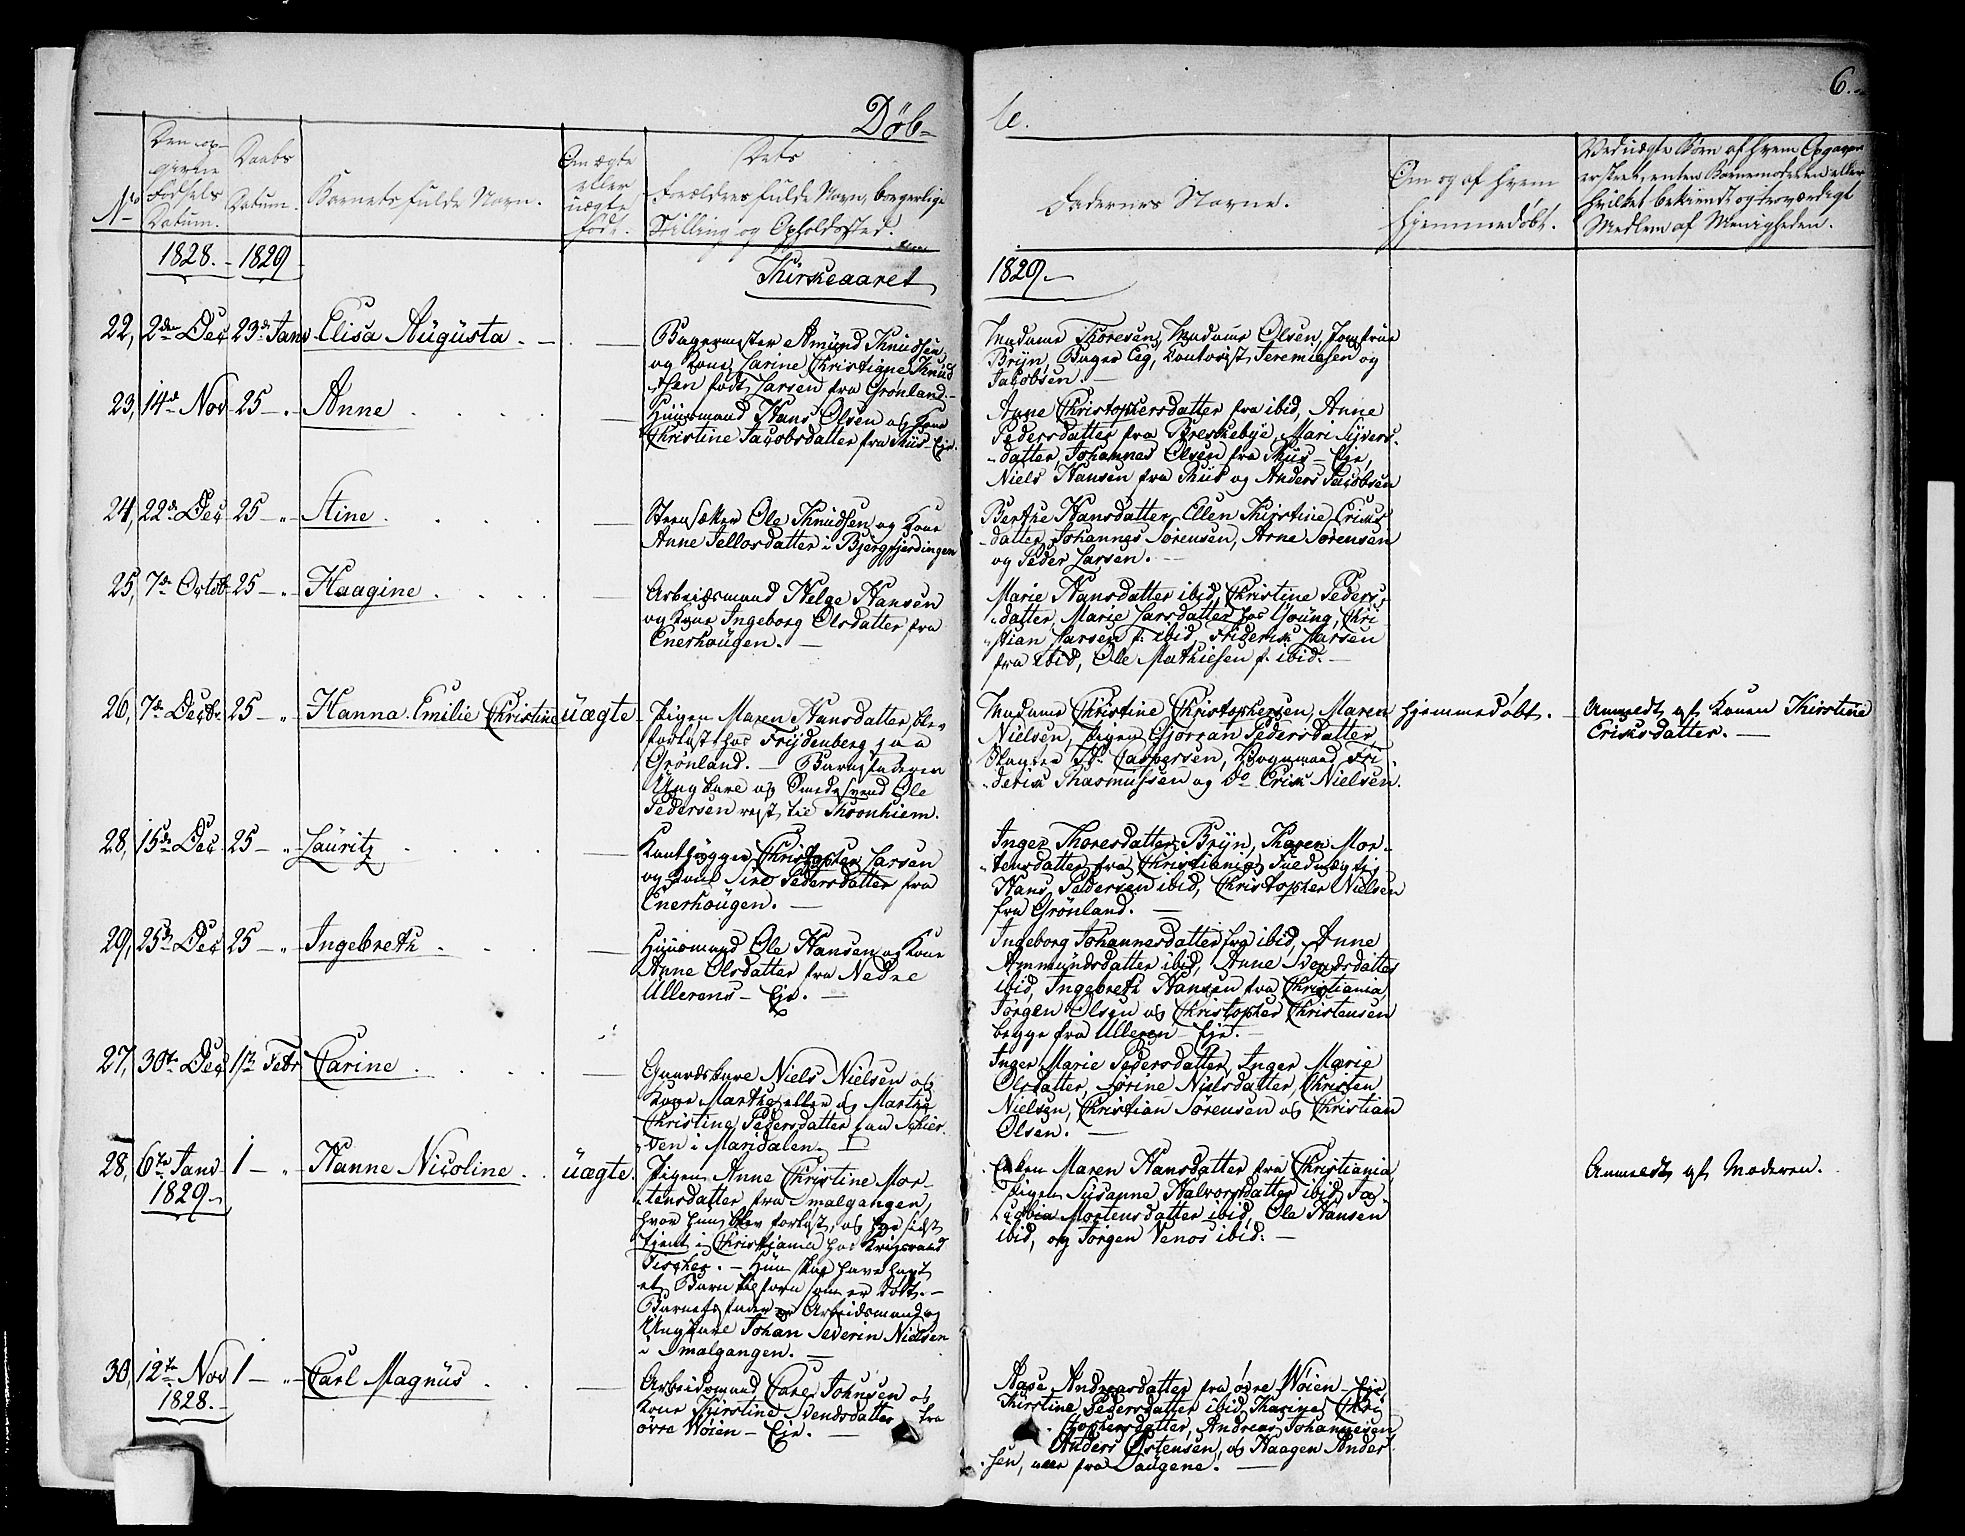 Døb-
te.
6.
No
Den op-
givne
Fødsels
Datum.
Daabs
Datum.
Barnets fulde Navn.
Om ægte
eller
uægte
født.
Dets
Forældres fulde Navn, borgerlige
Stilling og Opholdssted.
Faddernes Navne.
Om og af hvem
hjemmedøbt.
Ved uægte Børn af hvem Opgaven
er skeet, enten Barnemoderen eller
hvilket bekiendt og troværdigt
Medlem af Menigheden.
1828. 1829
Kirkeaaret
1829.
22, 2den Dec 23de Janv Elisa Augusta
Bagermester Amund Knudsen
og Kone Karine Christiane Knud
-sen født Larsen fra Grønland.
Madame Thoresen, Madame Olsen, Jomfrue
Bryn, Bager Eg, Contorist Jeremiesen og
Jacobsen.
23, 14de Nov 25 - " - Anne
Huusmand Hans Olsen og Kone
Christine Jacobsdatter fra Huus-Eje.
Anne Christophersdatter fra ibid, Anne
Pedersdatter fra Breskebye, Mari Syvers-
-datter, Johannes Olsen fra Huus-Eje,
Niels Hansen fra Huus og Anders Jacobsen
24, 22de Dec 25 - " - Stine
Ole Knudsen og Kone
Anne Tellosdatter i Bjergfjerdingen
Berthe Hansdatter, Ellen Kirstine Eriks
-datter, Johannes Sørensen, Arne Sørensen
og Peder Larsen.
25, 7de Octob 25 - " - Haagine
Arbeidsmand Helge Hansen
og Kone Ingeborg Olsdatter fra
Enerhaugen.
Marie Hansdatter ibid, Christine Peders-
-datter, Marie Larsdatter hos Young, Chri-
-stian Larsen f. ibid, Friderik Larsen
fra ibid, Ole Mathiesen f. ibid.
26, 7de Decbr 25 - " - Hanna Emilie Christine uægte
Pigen Maren Hansdatter blev
forløst hos Frydenberg paa
Grønland. - Barnefaderen
Ungkarl og Smedesvend Ole
Pedersen rejst til Throonhiem.
Madame Christine Christophersen, Maren
Nielsen, Pigen Gjørran Pedersdatter,
Slagter Casparsen, Vognmand Fri-
-derik Rasmussen og Do Erik Nielsen.
hjemmedøbt.
Anmeldt af Konen Kirstine
Eriksdatter.
28, 15de Dec 25 - " Lauritz
Christopher Larsen
og Kone Sine Pedersdatter fra
Enerhaugen.
Inger Thoresdatter Bryn, Karen Mor-
-tensdatter fra Christiania, Fuldmægtig
Hans Pedersen ibid, Christopher Nielsen
fra Grønland.
29, 25de Dec 25 - " - Ingebreth
Huusmand Ole Hansen og Kone
Anne Olsdatter fra Nedre
Ullerens-Eje.
Ingeborg Johannesdatter fra ibid, Anne
Ammundsdatter ibid, Anne Svendsdatter
ibid, Ingebreth Hansen fra Christiania,
Jørgen Olsen og Christopher Christensen
begge fra Ulleren-Eje.
27, 30te Dec 1ste Febr Carine
Gaardskarl Niels Nielsen og
Kone Marthe eller og Marthe
Christine Pedersdatter fra Skier-
-ven i Maridalen.
Inger Marie Pedersdatter, Inger Marie
Olsdatter, Sørine Nielsdatter, Christen
Nielsen, Christian Sørensen og Christian
Olsen.
28, 6te Janv 1 - " - Hanne Nicoline uægte.
1829.
Pigen Anne Christine Mor-
-tensdatter fra Smalgangen,
hvor hun blev forløst, og har sidst
tjent i Christiania hos Krigsraad
Fischer. - Hun skal have havt
et Barn tilforn som er dødt.
Barnefader er Arbeidsmand og
Ungkarl Johan Severin Nielsen
i Smalgangen.
Enken Maren Hansdatter fra Christiania,
Pigen Susanne Halvorsdatter ibid, Ja-
-cobia Mortensdatter ibid, Ole Hansen
ibid, og Jørgen Venos ibid.
Anmeldt af Moderen.
30, 12te Nov 1 - " - Carl Magnus
1828.
Arbeidsmand Carl Johnsen og
Kone Kirstine Svendsdatter fra
øvre Wøien-Eje.
Aase Andreasdatter fra øvre Wøien-Eje,
Kirstine Pedersdatter ibid, Karine Chri
-stophersdatter, Andreas Johannesen,
Anders Østensen, og Haagen Ander-
-sen, alle fra Saugene.